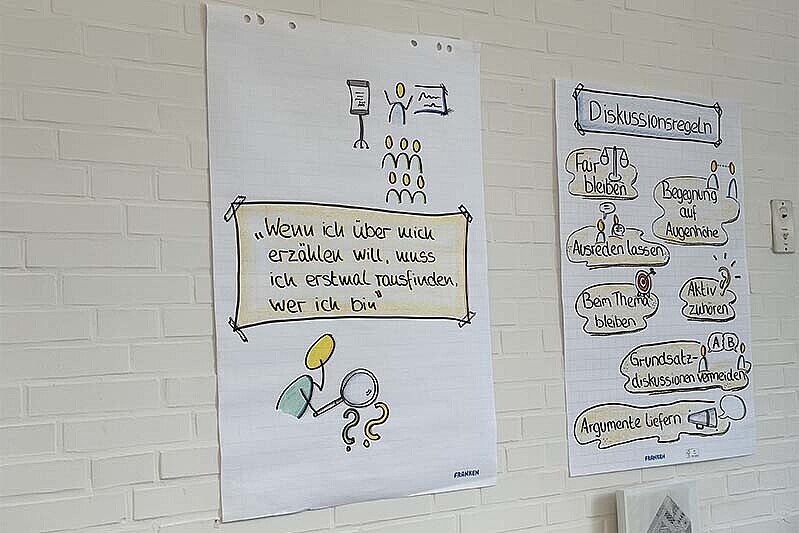 „Wenn ich über mich
erzählen will, muss
ich erstmal rausfinden,
wer ich bin"
FRANKEN
Diskussionsregeln
Fair
bleiben
Begegnung
auf
Augenhöhe
Ausreden lassen
Beim Thema
bleiben
Aktiv
zuhören
A B
Grundsatz-
diskussionen vermeiden
Argumente liefern
FRANKEN